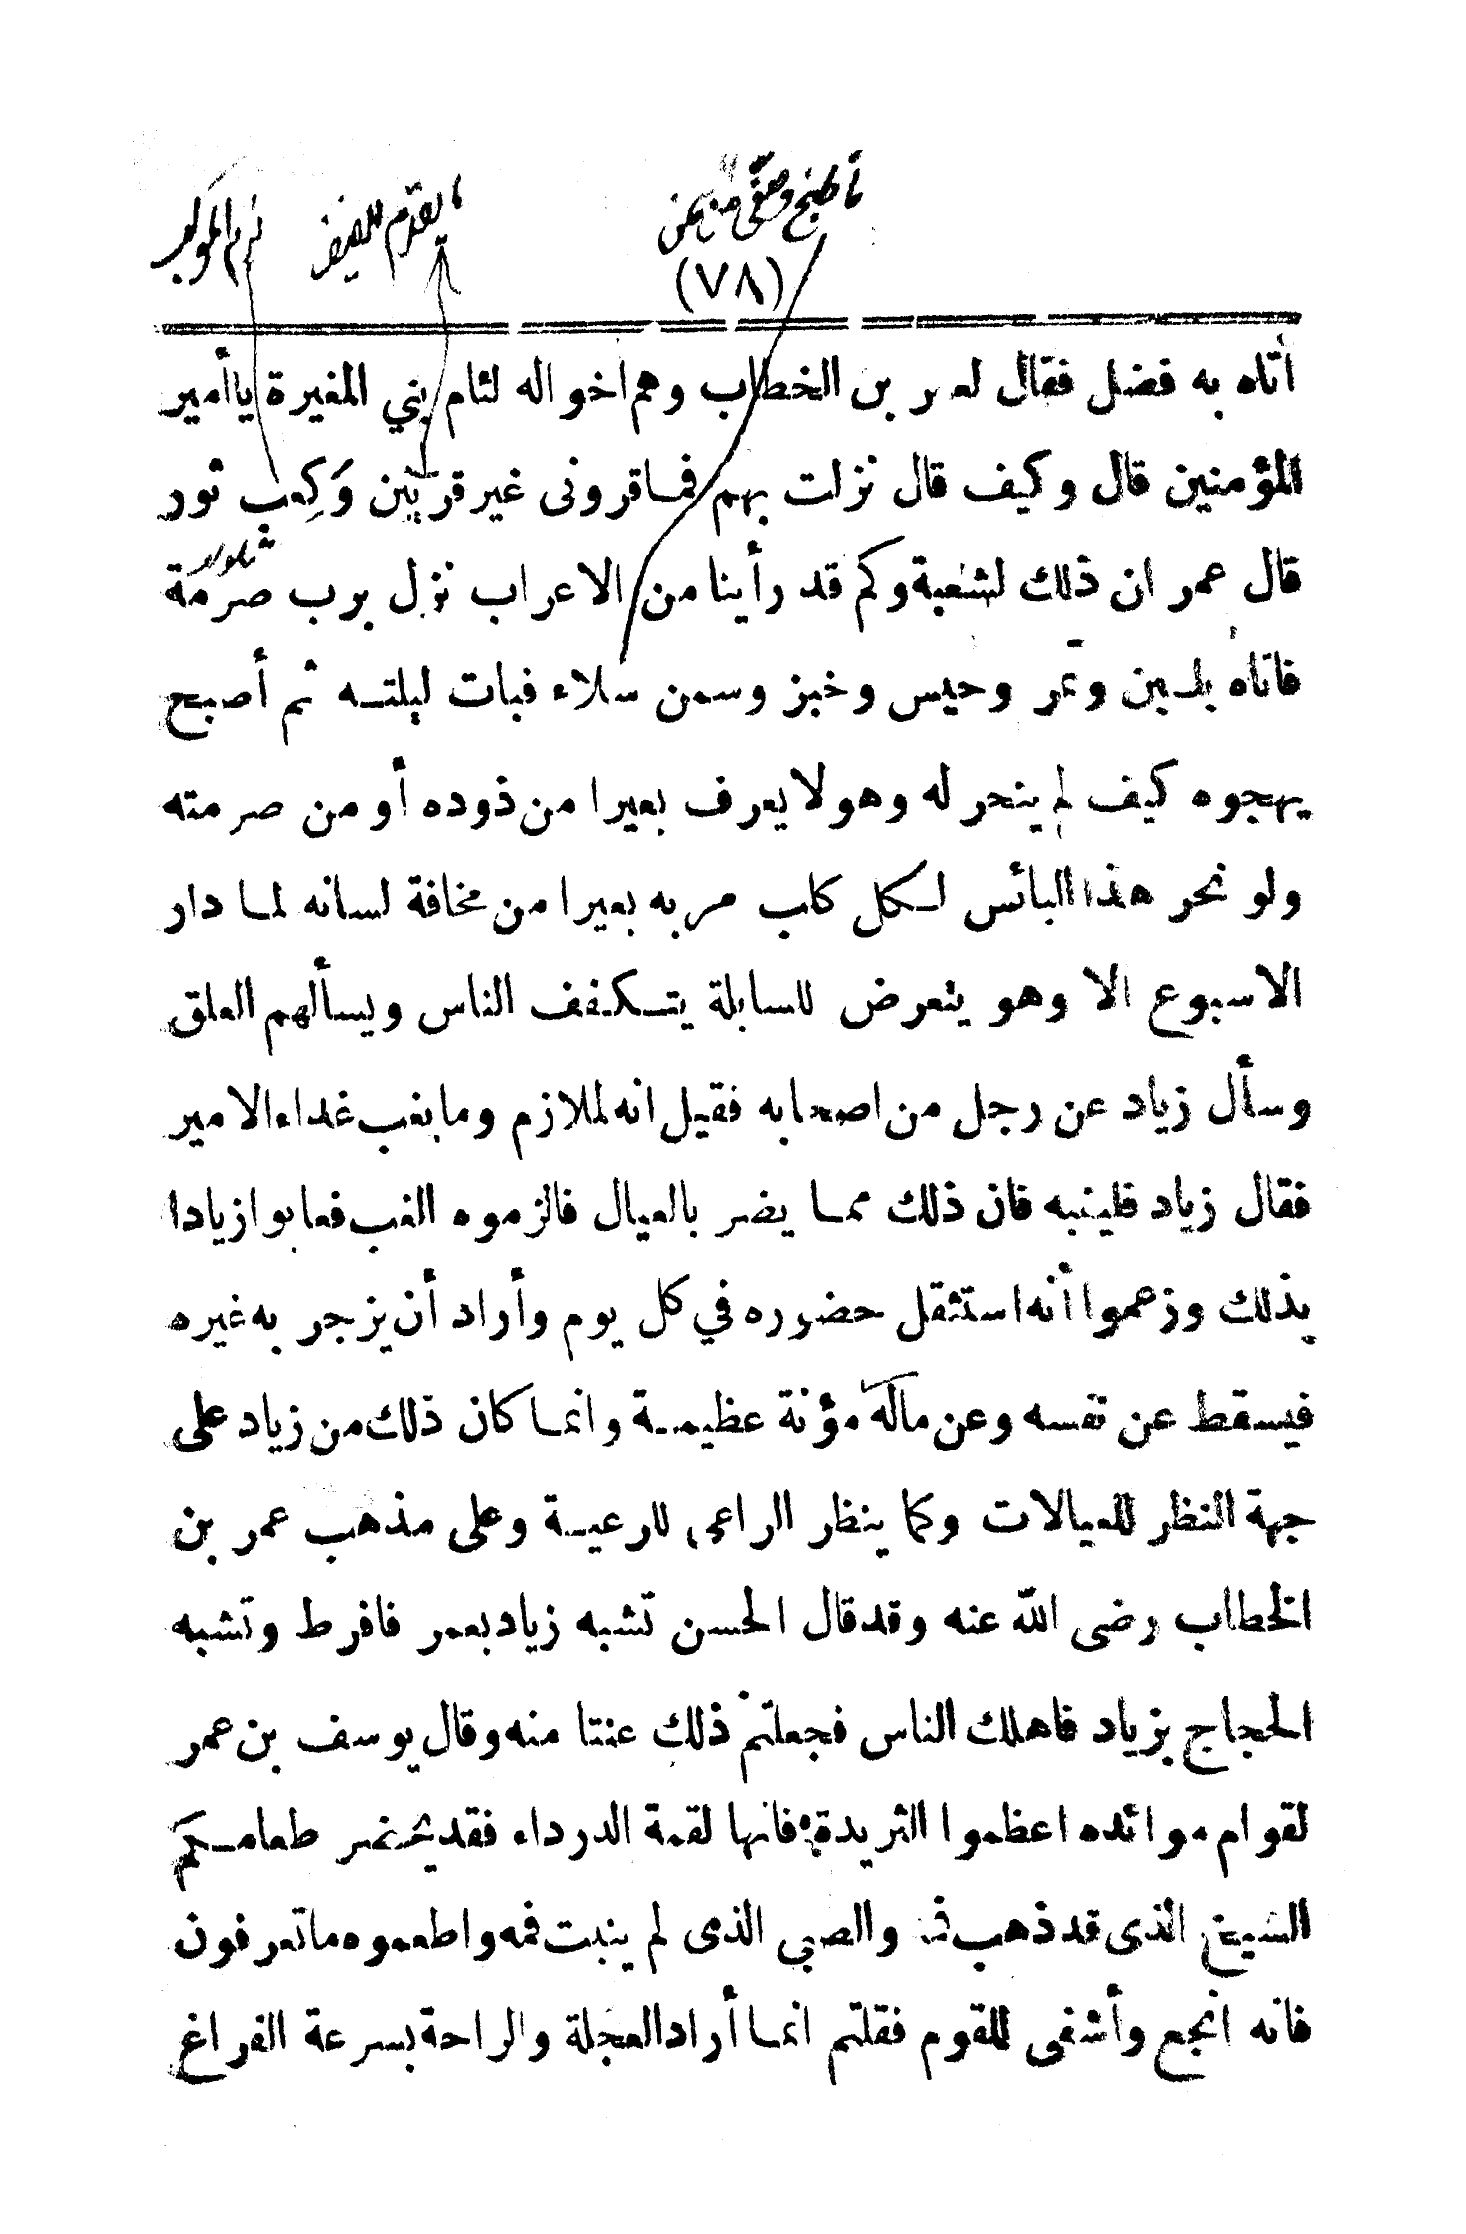 ما طبخ وصفّي من سمن
ما يقدم للضيف
(٧٨)
أتاه به فضل فقال لعمر بن الخطاب وهم اخواله لئام بني المغيرة ياأمير
المؤمنين قال وكيف قال نزلت بهم فماقروني غير قربين وَكِعب ثور
قال عمر ان ذلك لشبعة وكم قد رأينا من الاعراب نزل برب صرمة
فاتاه بلبن وتمر وحيس وخبز وسمن سلاء فبات ليلته ثم أصبح
يهجوه كيف لم ينحر له وهو لا يعرف بعيرا من ذوده أو من صرمته
ولو نحر هذا البائس لكل كلب مر به بعيرا من مخافة لسانه لما دار
الاسبوع الا وهو يتعرض للسابلة يتكفف الناس ويسألهم العلق
وسأل زياد عن رجل من اصحابه فقيل انه لملازم وما يغب غداء الامير
فقال زياد فليغبه فان ذلك مما يضر بالعيال فالزموه الغب فعابوا زيادا
بذلك وزعموا أنه استثقل حضوره في كل يوم وأراد أن يزجر به غيره
فيسقط عن نفسه وعن ماله مؤنة عظيمة وانما كان ذلك من زياد على
جهة النظر للعيالات وكما ينظر الراعي للرعية وعلى مذهب عمر بن
الخطاب رضى الله عنه وقد قال الحسن تشبه زياد بعمر فافرط وتشبه
الحجاج بزياد فاهلك الناس فجعلتم ذلك عنتا منه وقال يوسف بن عمر
لقوام موائده اعظموا الثريدة فانها لقمة الدرداء فقد يحضر طعامكم
الشيخ الذى قد ذهب فمه والصبي الذى لم ينبت فمه واطعموه ما تعرفون
فانه انجع وأشفى للقوم فقلتم انما أراد العجلة والراحة بسرعة الفراغ